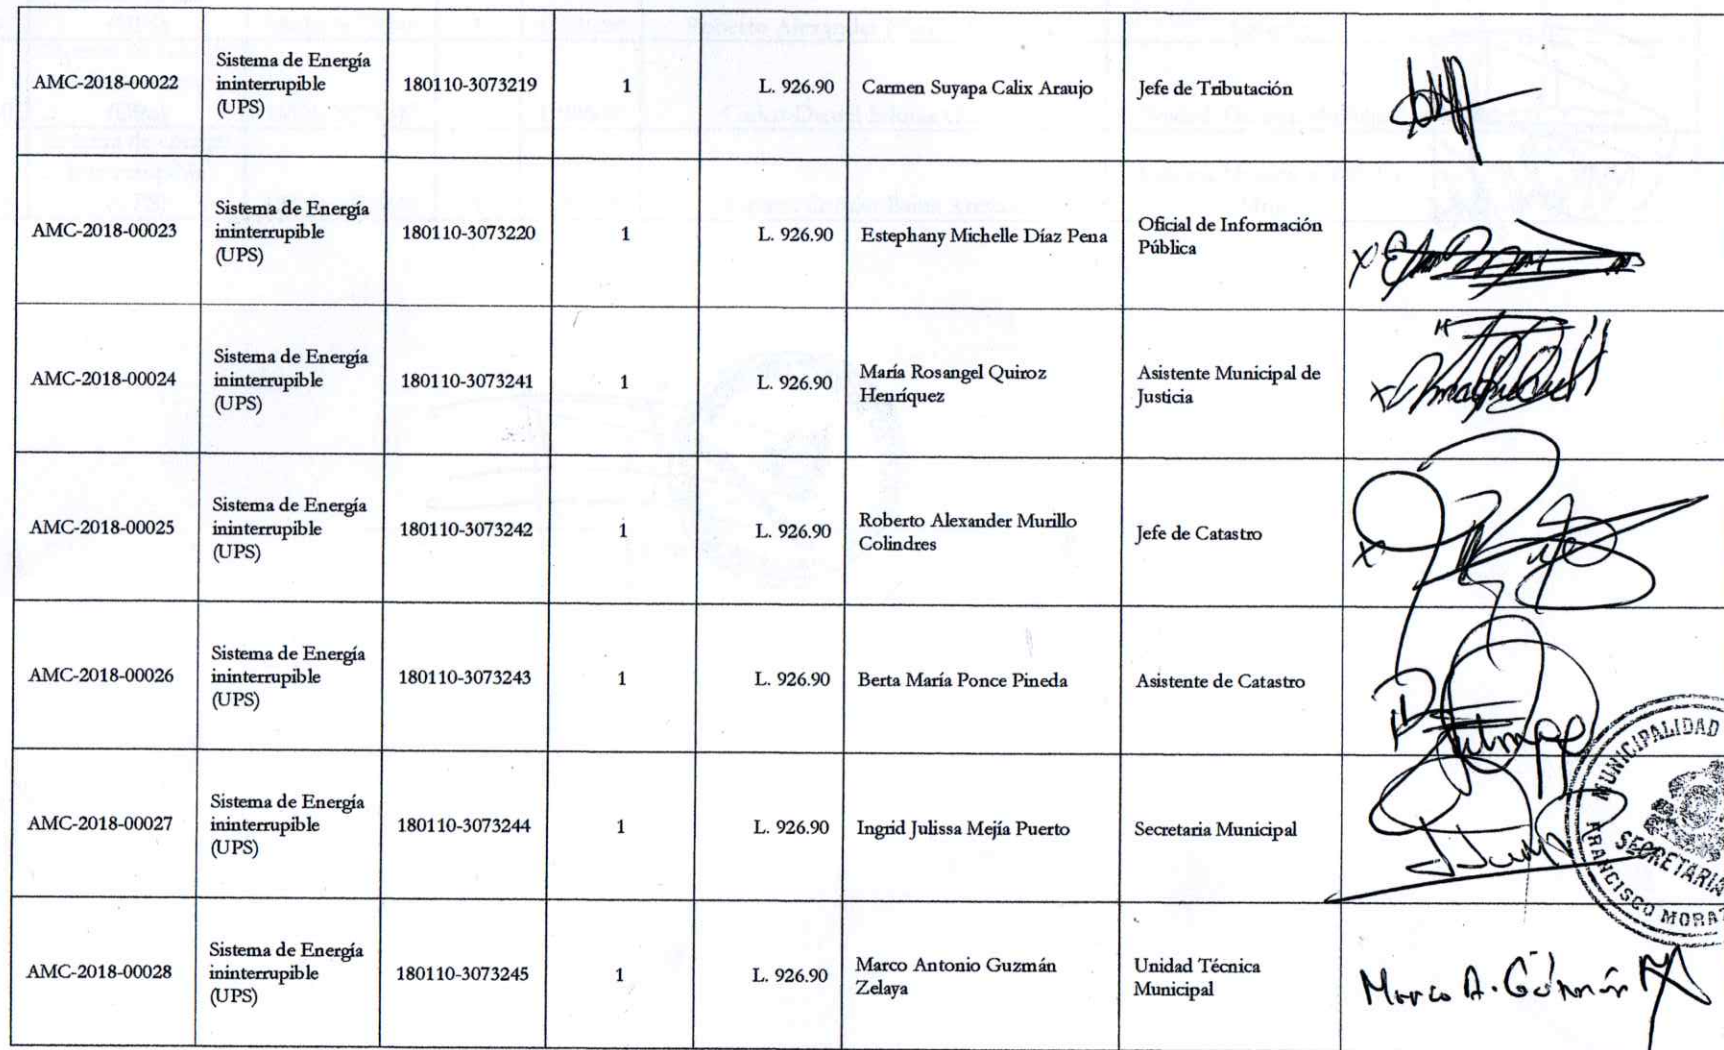 AMC-2018-00022
Sistema de Energía
ininterrupible
(UPS)
180110-3073219
1
L. 926.90
Carmen Suyapa Calix Araujo
Jefe de Tributación
AMC-2018-00023
Sistema de Energía
ininterrupible
(UPS)
180110-3073220
1
L. 926.90
Estephany Michelle Díaz Pena
Oficial de Información
Pública
AMC-2018-00024
Sistema de Energía
ininterrupible
(UPS)
180110-3073241
1
L. 926.90
María Rosangel Quiroz
Henríquez
Asistente Municipal de
Justicia
AMC-2018-00025
Sistema de Energía
ininterrupible
(UPS)
180110-3073242
1
L. 926.90
Roberto Alexander Murillo
Colindres
Jefe de Catastro
AMC-2018-00026
Sistema de Energía
ininterrupible
(UPS)
180110-3073243
1
L. 926.90
Berta María Ponce Pineda
Asistente de Catastro
AMC-2018-00027
Sistema de Energía
ininterrupible
(UPS)
180110-3073244
1
L. 926.90
Ingrid Julissa Mejía Puerto
Secretaria Municipal
MUNICIPALIDAD
SECRETARIA
FRANCISCO MORAZ
AMC-2018-00028
Sistema de Energía
ininterrupible
(UPS)
180110-3073245
1
L. 926.90
Marco Antonio Guzmán
Zelaya
Unidad Técnica
Municipal
Marco A. Guzmán